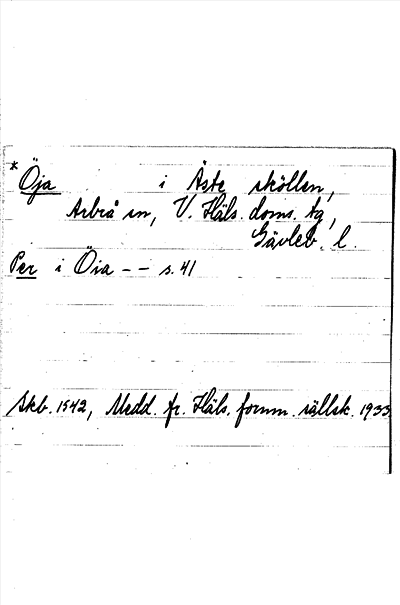 * Öja i Åste sköllen,
Arbrå sn, V. Häls. doms. tg,
Gävleb. l.
Per i Öia – – s. 41
Skb. 1542, Medd. fr. Häls. fornm. sällsk. 1933